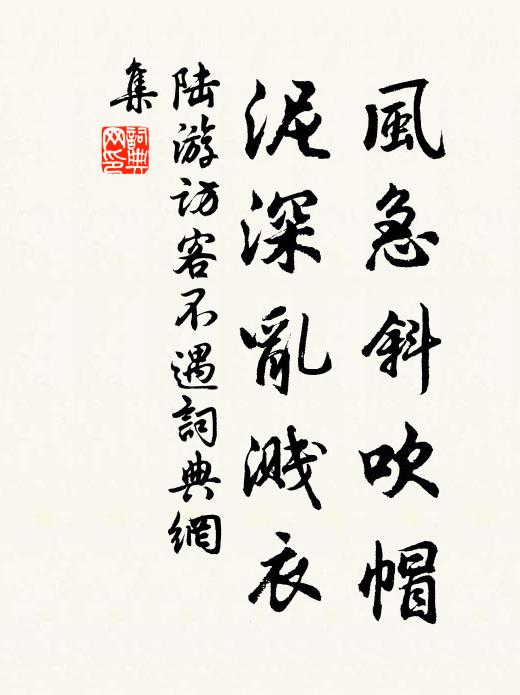 風急斜吹帽
泥深亂濺衣
陆游访客不遇詞典網
集
詞典網印